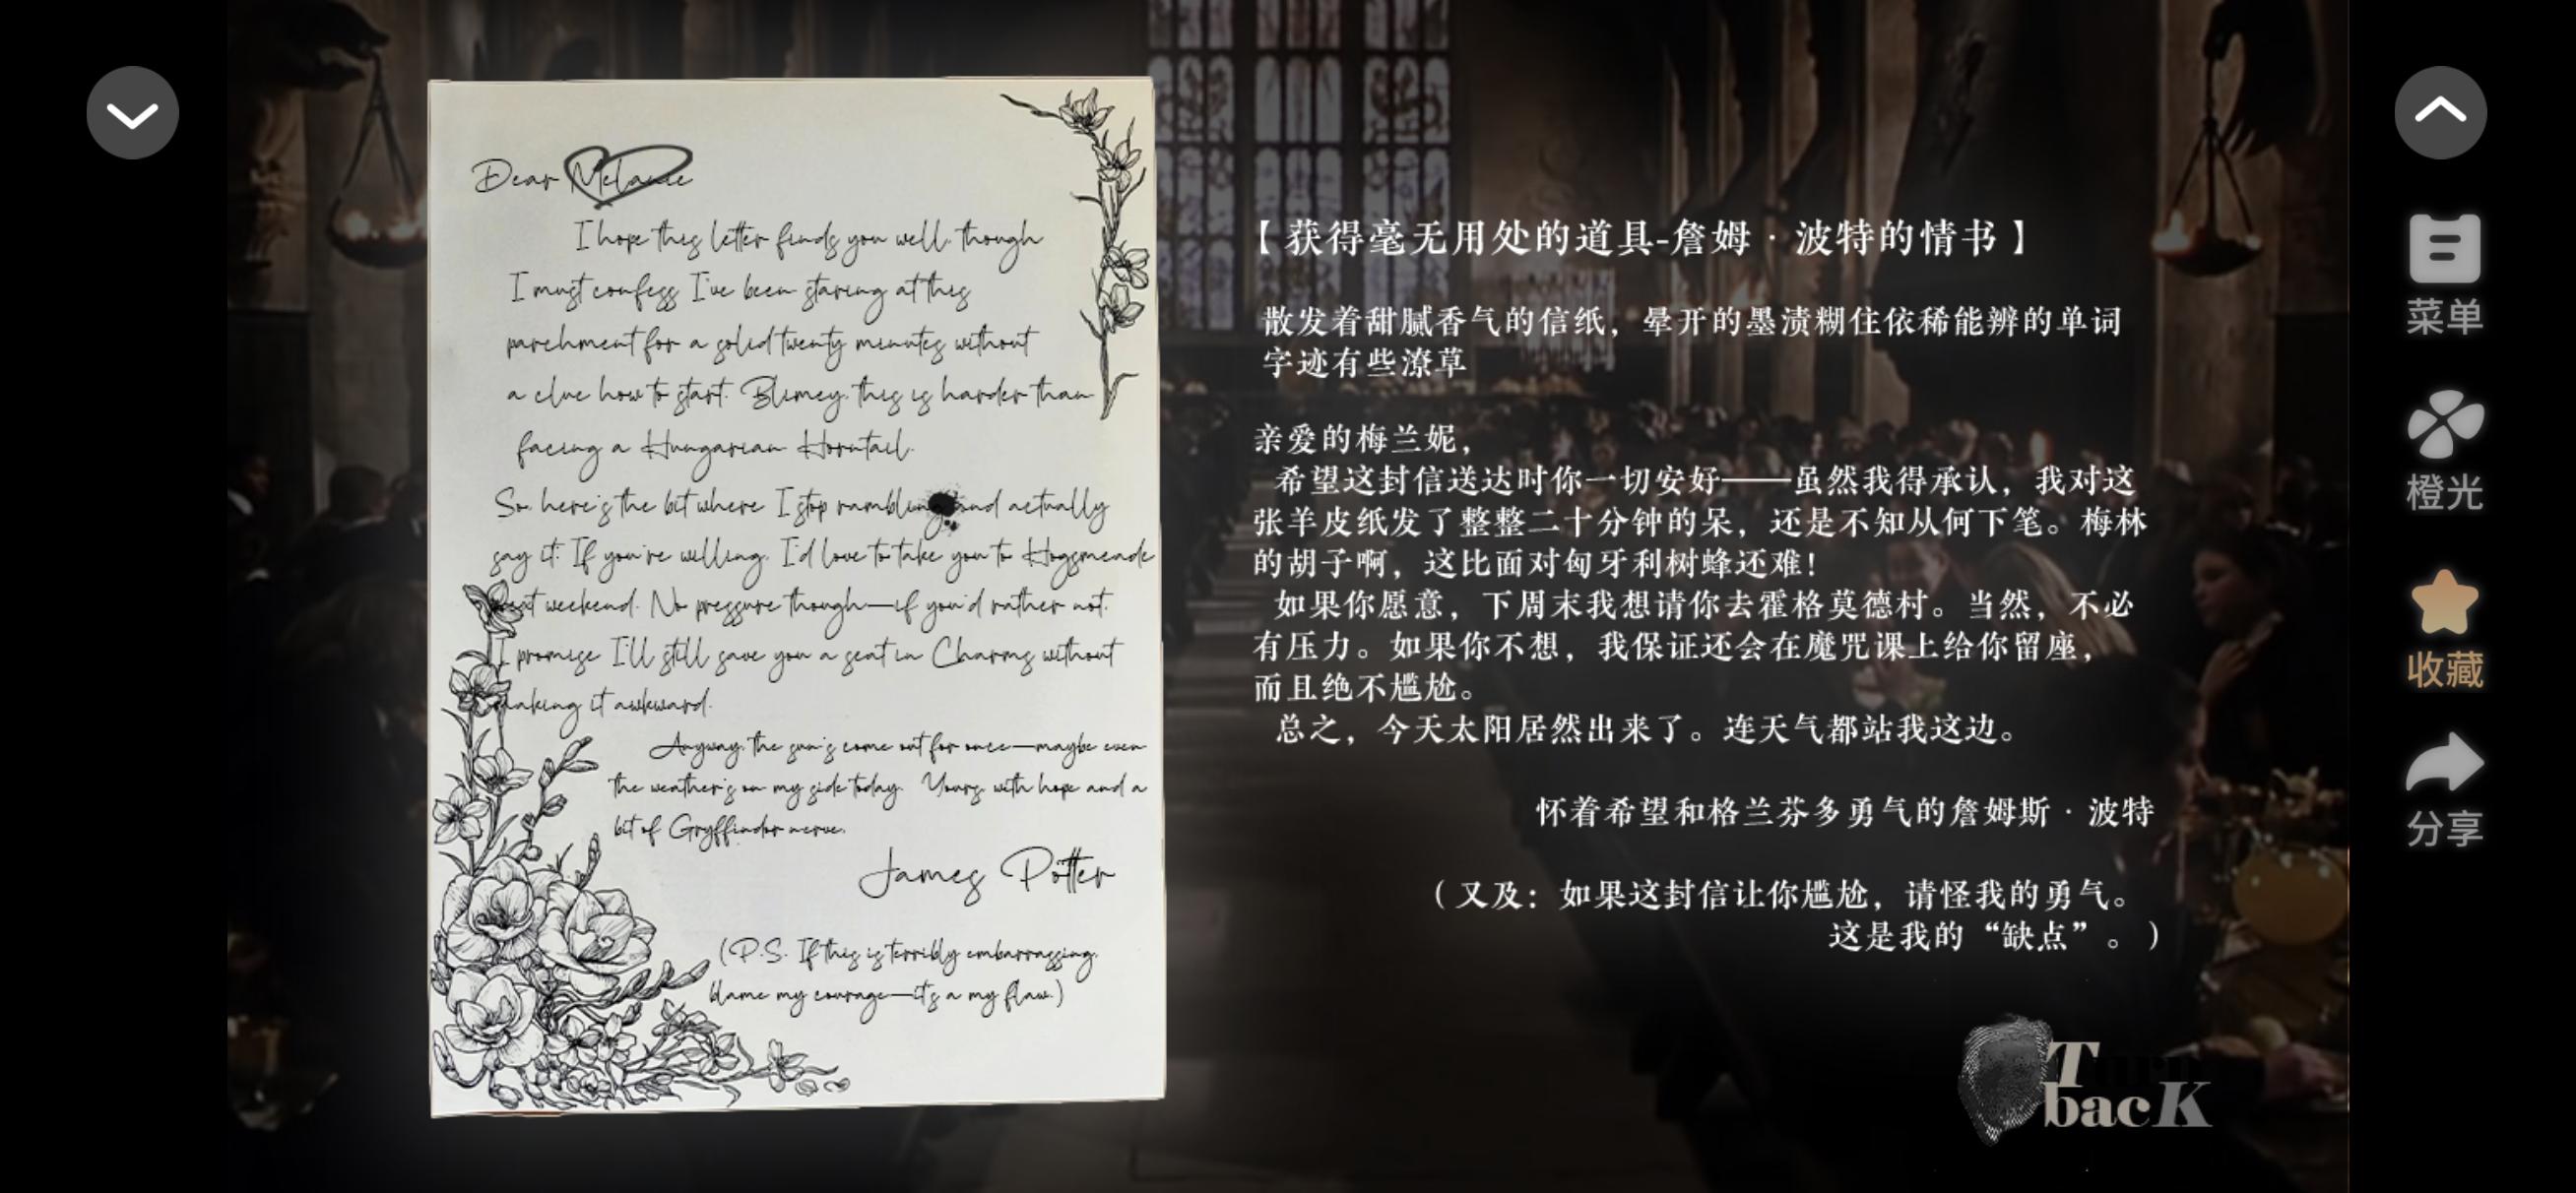 Dear Melanie
I hope this letter finds you well, though
I must confess I've been staring at this
parchment for a solid twenty minutes without
a clue how to start. Blimey, this is harder than
facing a Hungarian Horntail.
So, here's the bit where I stop rambling and actually
say it: If you're willing, I'd love to take you to Hogsmeade
weekend. No pressure though—if you'd rather not,
I promise I'll still save you a seat in Charms without
making it awkward.
Anyway, the sun's come out for once—maybe even
the weather's on my side today. Yours, with hope and a
bit of Gryffindor nerve,
James Potter
(P.S. If this is terribly embarrassing,
blame my courage—it's a my flaw.)
【获得毫无用处的道具-詹姆·波特的情书】
散发着甜腻香气的信纸，晕开的墨渍糊住依稀能辨的单词
字迹有些潦草
亲爱的梅兰妮，
希望这封信送达时你一切安好——虽然我得承认，我对这
张羊皮纸发了整整二十分钟的呆，还是不知从何下笔。梅林
的胡子啊，这比面对匈牙利树蜂还难！
如果你愿意，下周末我想请你去霍格莫德村。当然，不必
有压力。如果你不想，我保证还会在魔咒课上给你留座，
而且绝不尴尬。
总之，今天太阳居然出来了。连天气都站我这边。
怀着希望和格兰芬多勇气的詹姆斯·波特
（又及：如果这封信让你尴尬，请怪我的勇气。
这是我的“缺点”。）
Turn
bacK
菜单
橙光
收藏
分享